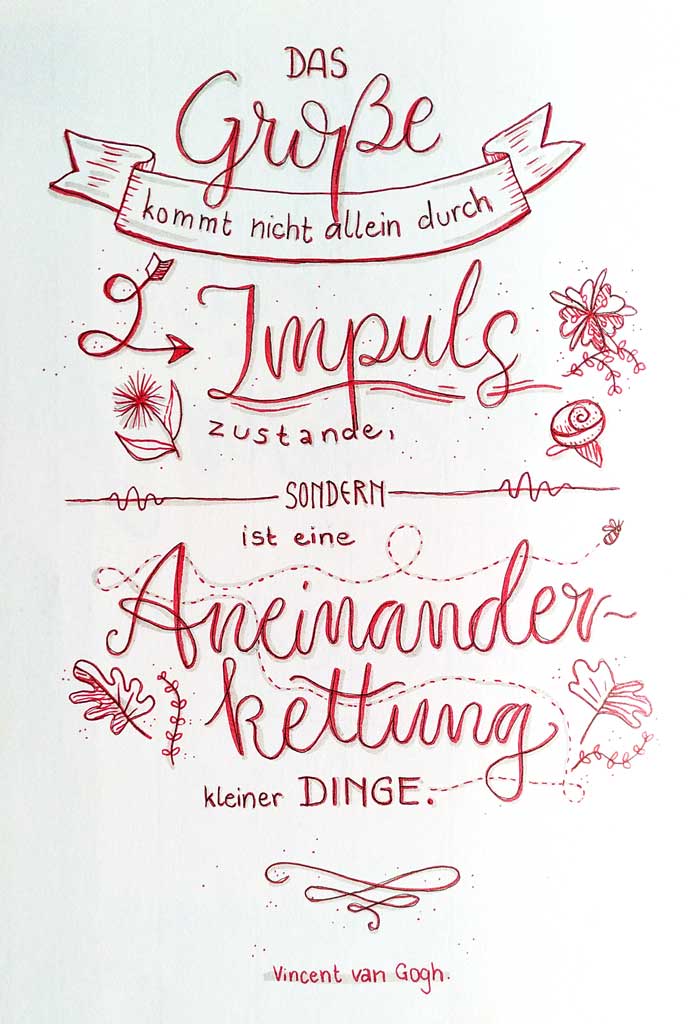 DAS
Große
kommt nicht allein durch
Impuls
zustande,
SONDERN
ist eine
Aneinander-
kettung
kleiner DINGE.
Vincent van Gogh.